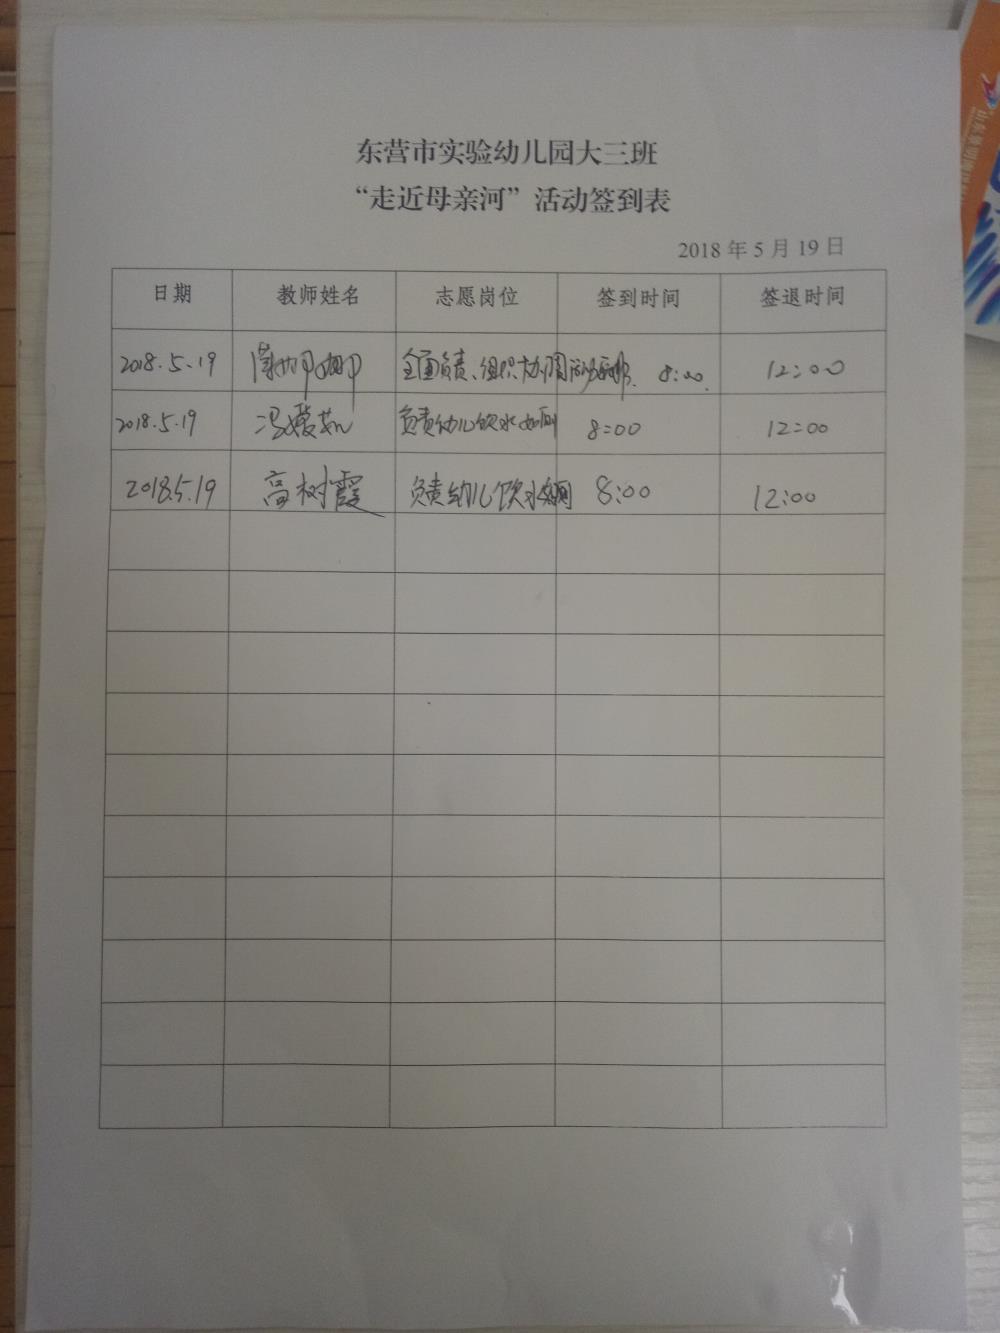 东营市实验幼儿园大三班
“走近母亲河”活动签到表
2018年5月19日
日期 教师姓名 志愿岗位 签到时间 签退时间
2018.5.19 全面负责、组织协调 8:00 12:00
2018.5.19 冯媛茹 负责幼儿饮水如厕 8:00 12:00
2018.5.19 高树霞 负责幼儿饮水 8:00 12:00